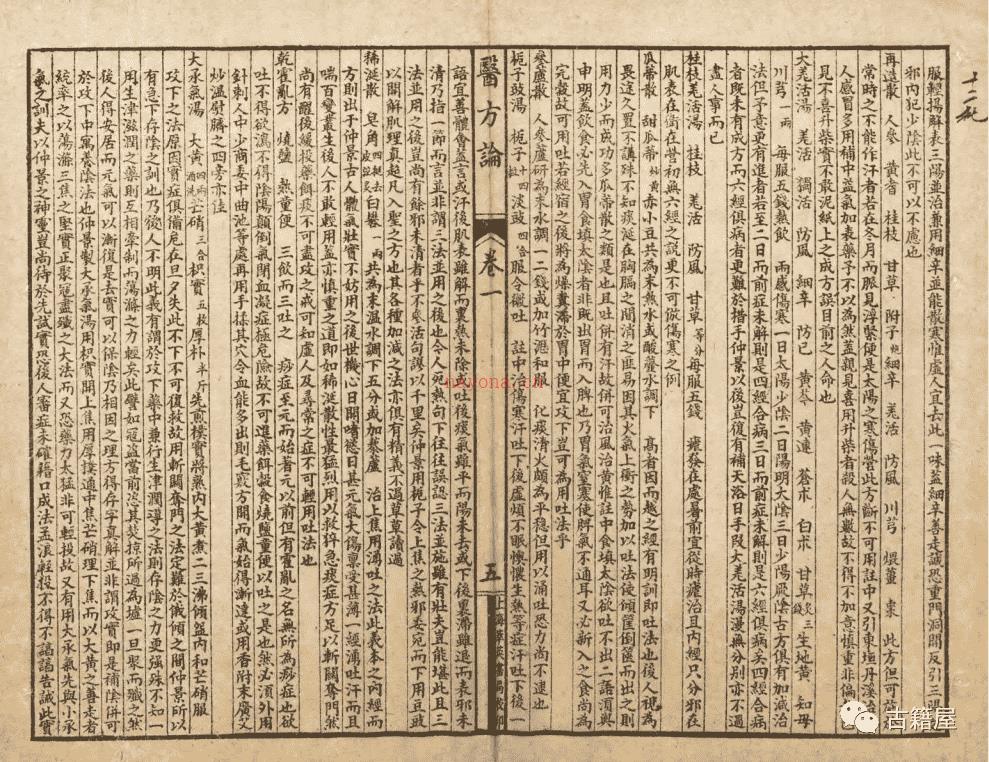 十二死
服輕揚解表三陽並治兼用細辛並能散寒惟虛人宜去此一味蓋細辛善走誠恐重門洞開反引三陽之
邪內犯少陰此不可以不慮也
再造散 人參 黃耆 桂枝 甘草 附子炮 細辛 羌活 防風 川芎 煨薑 棗 此方但可施
常時之不能作汗者若在冬月而脈見浮緊便是太陽之寒傷營此方斷不可用註中又引東垣丹溪治
人感冒多用補中益氣加表藥予不以為然蓋親見喜用升柴者殺人無數故不得不加意慎重非偏
見不喜升柴實不敢泥紙上之成方誤目前之人命也
大羌活湯 羌活 獨活 防風 細辛 防已 黃芩 黃連 蒼朮 白朮 甘草炙 三錢 生地黃 知母
川芎一兩 每服五錢熱飲 兩感傷寒一日太陽少陰二日陽明太陰三日少陽厥陰古方俱有加減治
法但予意更有進進者若至二日而前症未解則是四經合病三日而前症未解則是六經俱病矣四經合病
者既未有成方而六經俱病者更難於措手仲景以後豈復有補天浴日手段大羌活湯漫無分別亦不過
盡人事而已
桂枝羌活湯 桂枝 羌活 防風 甘草等分 每服五錢 瘧發在處暑前宜從時瘧治且內經只分邪在
肌表在衛在營初無六經之說更不可做傷寒之例
瓜蒂散 甜瓜蒂炒黃 赤小豆共為末熱水或酸虀水調下 高者因而越之經有明訓即吐法也後人視為
畏途久置不講殊不知痰涎在胸膈之間消之匪易因其火氣上衝之勢加以吐法使傾筐倒篋而出之則
用力少而成功多瓜蒂散之類是也且吐併有汗故併可治風治黃惟註中食填太陰欲吐不出二語須與
申明蓋飲食必先入胃食填太陰者非既出胃而入脾也乃胃氣窒塞使脾氣不通耳又必新入之食尚為
完穀故可用吐若經宿之後將為燥糞滯於胃中便宜攻下豈可為用吐法乎
參蘆散 人參蘆研為末水調一二錢或加竹瀝和服 化痰清火頗為平穩但用以涌吐恐力尚不逮也
梔子豉湯 梔子十四枚 淡豉四合 服令微吐 註中治傷寒汗吐下後虛煩不眠懊憹生熱等症汗吐下後一
醫方論
卷一
五
語宜善體會蓋言或汗後肌表雖解而裏熱未除或吐後痰氣雖平而陽未去或下後裏滯雖退而表邪未
清乃指一節而言並非謂三法並用之後也令人死熱句下往往誤認三法並施雖有壯夫豈能堪此且三
法並用之後豈尚有餘邪未清者乎不參活句謬以千里矣仲景用梔子令上焦之熱邪委宛而下用豆豉
以開解肌理真超凡入聖之方也其各種加減之法亦俱有精義不過草草讀過
稀涎散 皂角四挺去皮 白礬一兩 共為末溫水調下五分或加藜蘆 治上焦用涌吐之法此義本之內經而
方則出于仲景古人體氣壯實不妨用之後世機心日開嗜慾日甚元氣大傷禀受甚薄一經湧吐汗而且
喘百變叢生後人不敢輕用蓋亦慎重之道即如稀涎散性最猛烈用以救猝急痰症方足以斬關奪門然
尚有醒後緩投藥餌痰不可盡攻之戒可知虛人及尋常之症不可輕用吐法也
乾霍亂方 燒鹽 熱童便 三飲而三吐之 痧症至元而始著元以前但有霍亂之名無所為痧症也欲
吐不得欲瀉不得陰陽顛倒氣閉血凝症極危險故不可進藥餌穀食燒鹽童便以吐之是也然必須外用
針刺人中少商委中曲池等處再用手揉其穴令血能多出則毛竅方開而氣始得漸達或用香附末廣艾
炒溫熨臍之四旁亦佳
大承氣湯 大黃四兩酒洗 芒硝三合 枳實五枚 厚朴半斤 先煎樸實將熟內大黃煮二三沸傾盌內和芒硝服
攻下之法原因實症俱備危在旦夕失此不下不可復救故用斬關奪門之法定難於俄傾之間仲景所以
有急下存陰之訓也乃後人不明此義有謂於攻下藥中兼行生津潤導之法則存陰之力更强殊不知一
用生津滋潤之藥則互相牽制而蕩滌之力輕矣此譬如寇盜當前恣其焚掠所過為墟一旦聚而殲之然
後人得安居而元氣可以漸復是去實可以保陰乃相因之理方得存字真解並非謂攻實即是補陰併可
於攻下中寓養陰法也仲景製大承氣湯用枳實開上焦用厚樸通中焦芒硝理下焦而以大黃之善走者
統率之以蕩滌三焦之堅實正聚寇盡殲之大法而又恐藥力太猛非可輕投故又有用大承氣先與小承
氣之訓夫以仲景之神靈豈尚待於先試實恐後人審症未確藉口成法孟浪輕投不得不諄諄告誡此實
nevona.cn
古籍屋